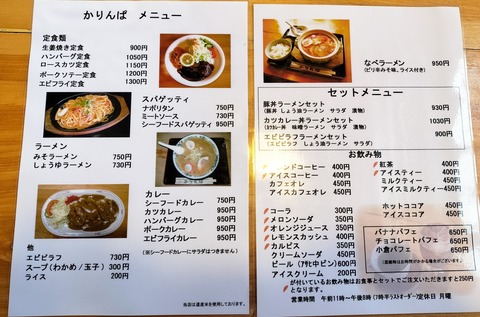 かりんぱ メニュー
定食類
生姜焼き定食 900円
ハンバーグ定食 1050円
ロースカツ定食 1150円
ポークソテー定食 1200円
エビフライ定食 1300円
スパゲッティ
ナポリタン 750円
ミートソース 730円
シーフードスパゲッティ 950円
ラーメン
みそラーメン 750円
しょうゆラーメン 730円
カレー
シーフードカレー 950円
カツカレー 950円
ハンバーグカレー 950円
ポークカレー 900円
エビフライカレー 950円
(※シーフードカレーにサラダはつきません)
他
エビピラフ 730円
スープ(わかめ/玉子) 300円
ライス 200円
当店は道産米を使用しております。
なべラーメン 950円
(ピリ辛みそ味、ライス付き)
セットメニュー
豚丼ラーメンセット 930円
(豚丼 しょうゆラーメン サラダ 漬物)
カツカレー丼ラーメンセット 1030円
(カツカレー丼 味噌ラーメン サラダ 漬物)
エビピラフラーメンセット 900円
(エビピラフ しょうゆラーメン サラダ)
お飲み物
ブレンドコーヒー 350円
アイスコーヒー 400円
カフェオレ 400円
アイスカフェオレ 450円
紅茶 400円
アイスティー 400円
ミルクティー 450円
アイスミルクティー 450円
コーラ 300円
メロンソーダ 350円
オレンジジュース 350円
レモンスカッシュ 400円
カルピス 350円
クリームソーダ 450円
ビール(アサヒ中ビン) 600円
アイスクリーム 200円
ホットココア 400円
アイスココア 450円
バナナパフェ 650円
チョコレートパフェ 650円
小倉パフェ 650円
が付いているお飲み物はお食事とセットでご注文いただきますと250円
となります。
営業時間 午前11時~午後8時(7時半ラストオーダー)定休日 月曜